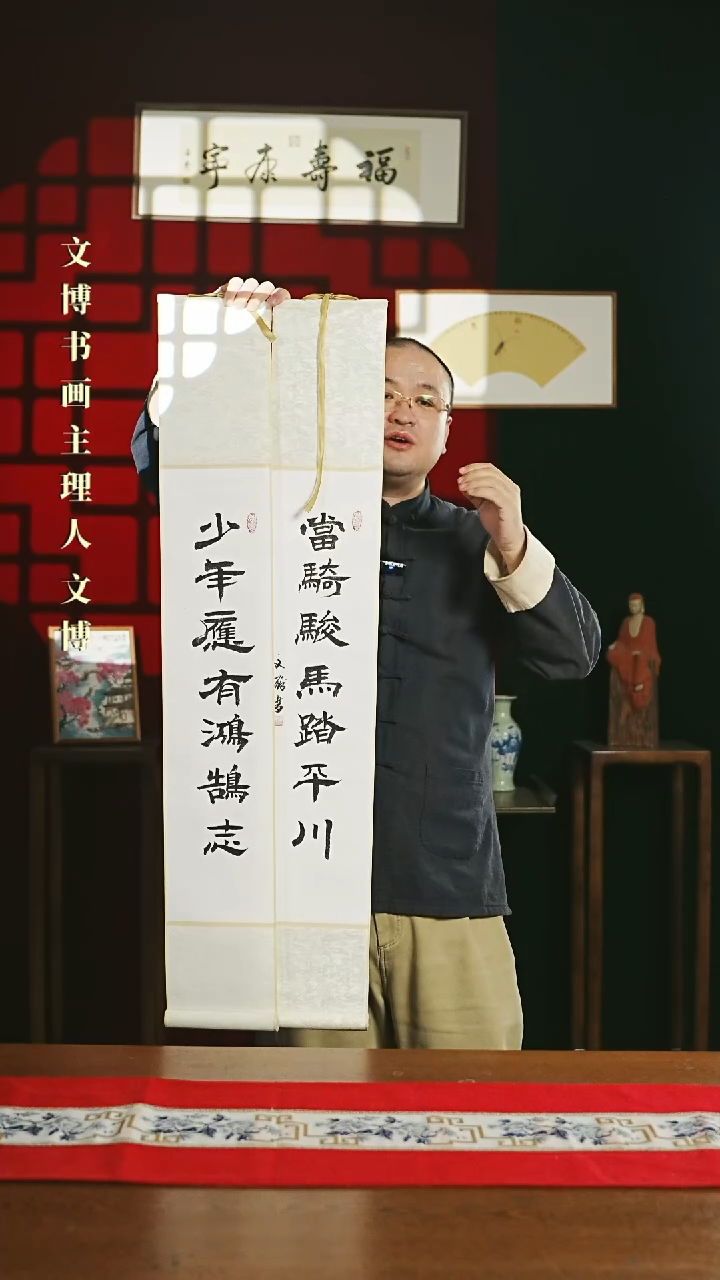 福壽康宁
文博书画主理人文博
當騎駿馬踏平川
少年應有鴻鵠志